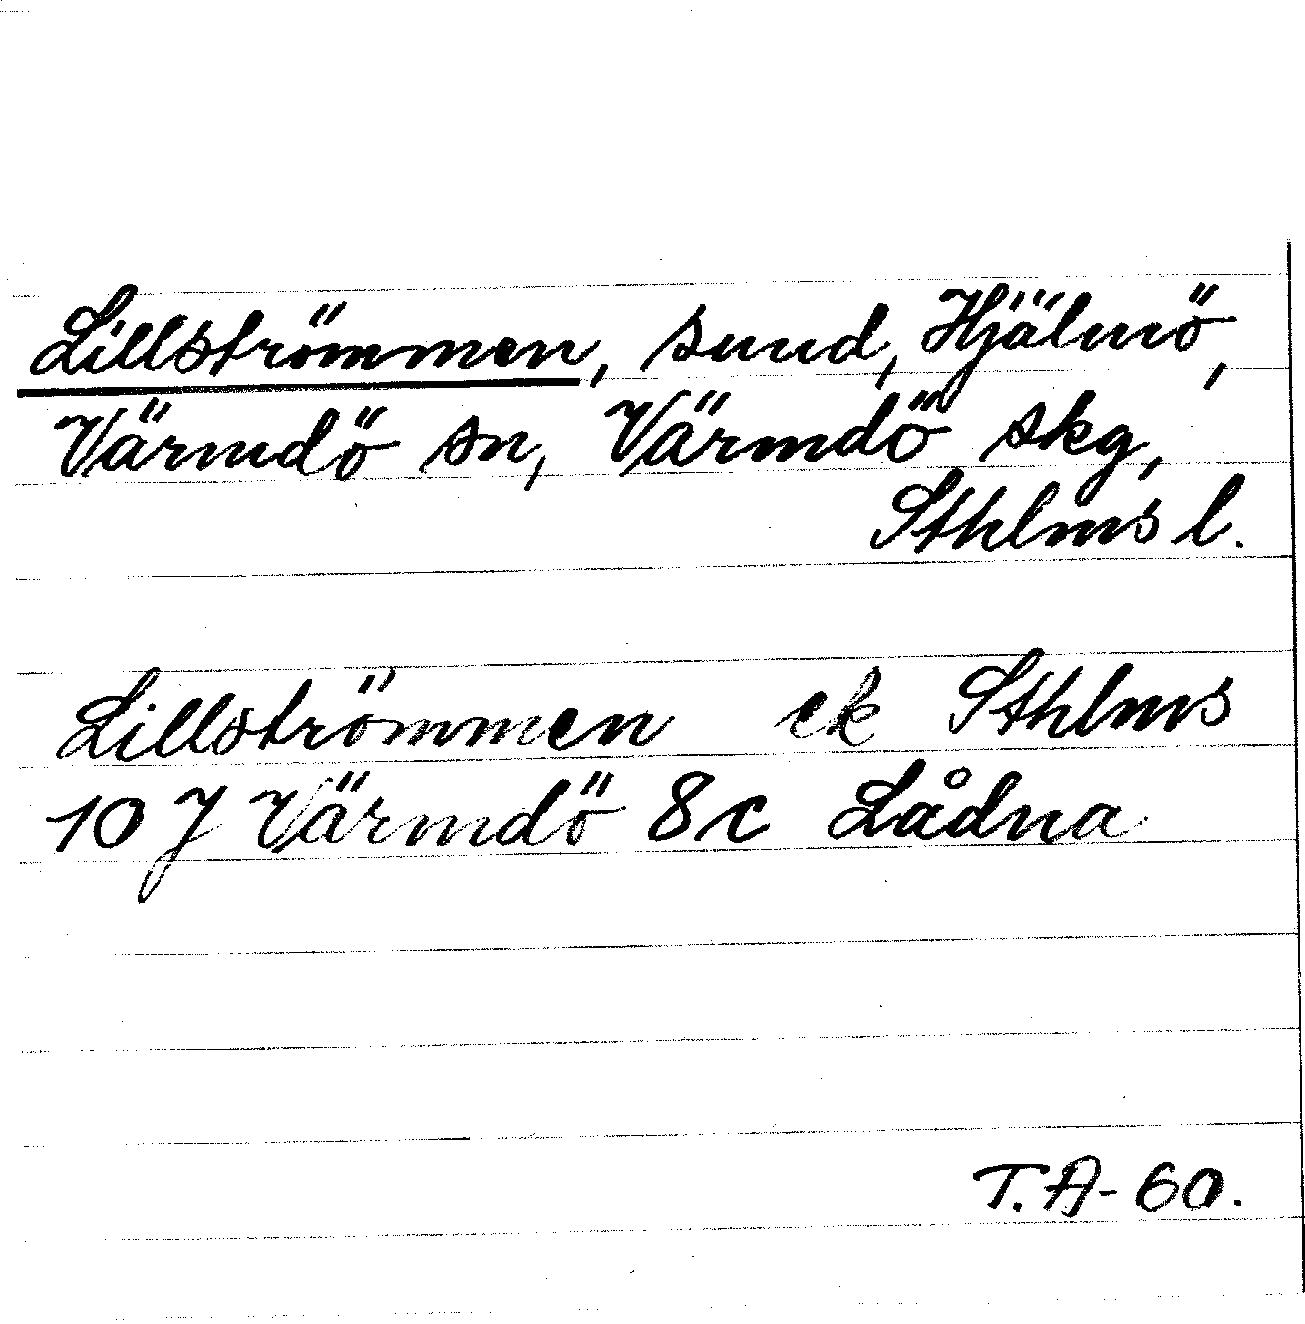 Lillströmmen, sund, Hjälmö,
Värmdö sn, Värmdö skg,
Sthlms l.
Lillströmmen ek Sthlms
10 J Värmdö 8c Lådna
T.A-60.